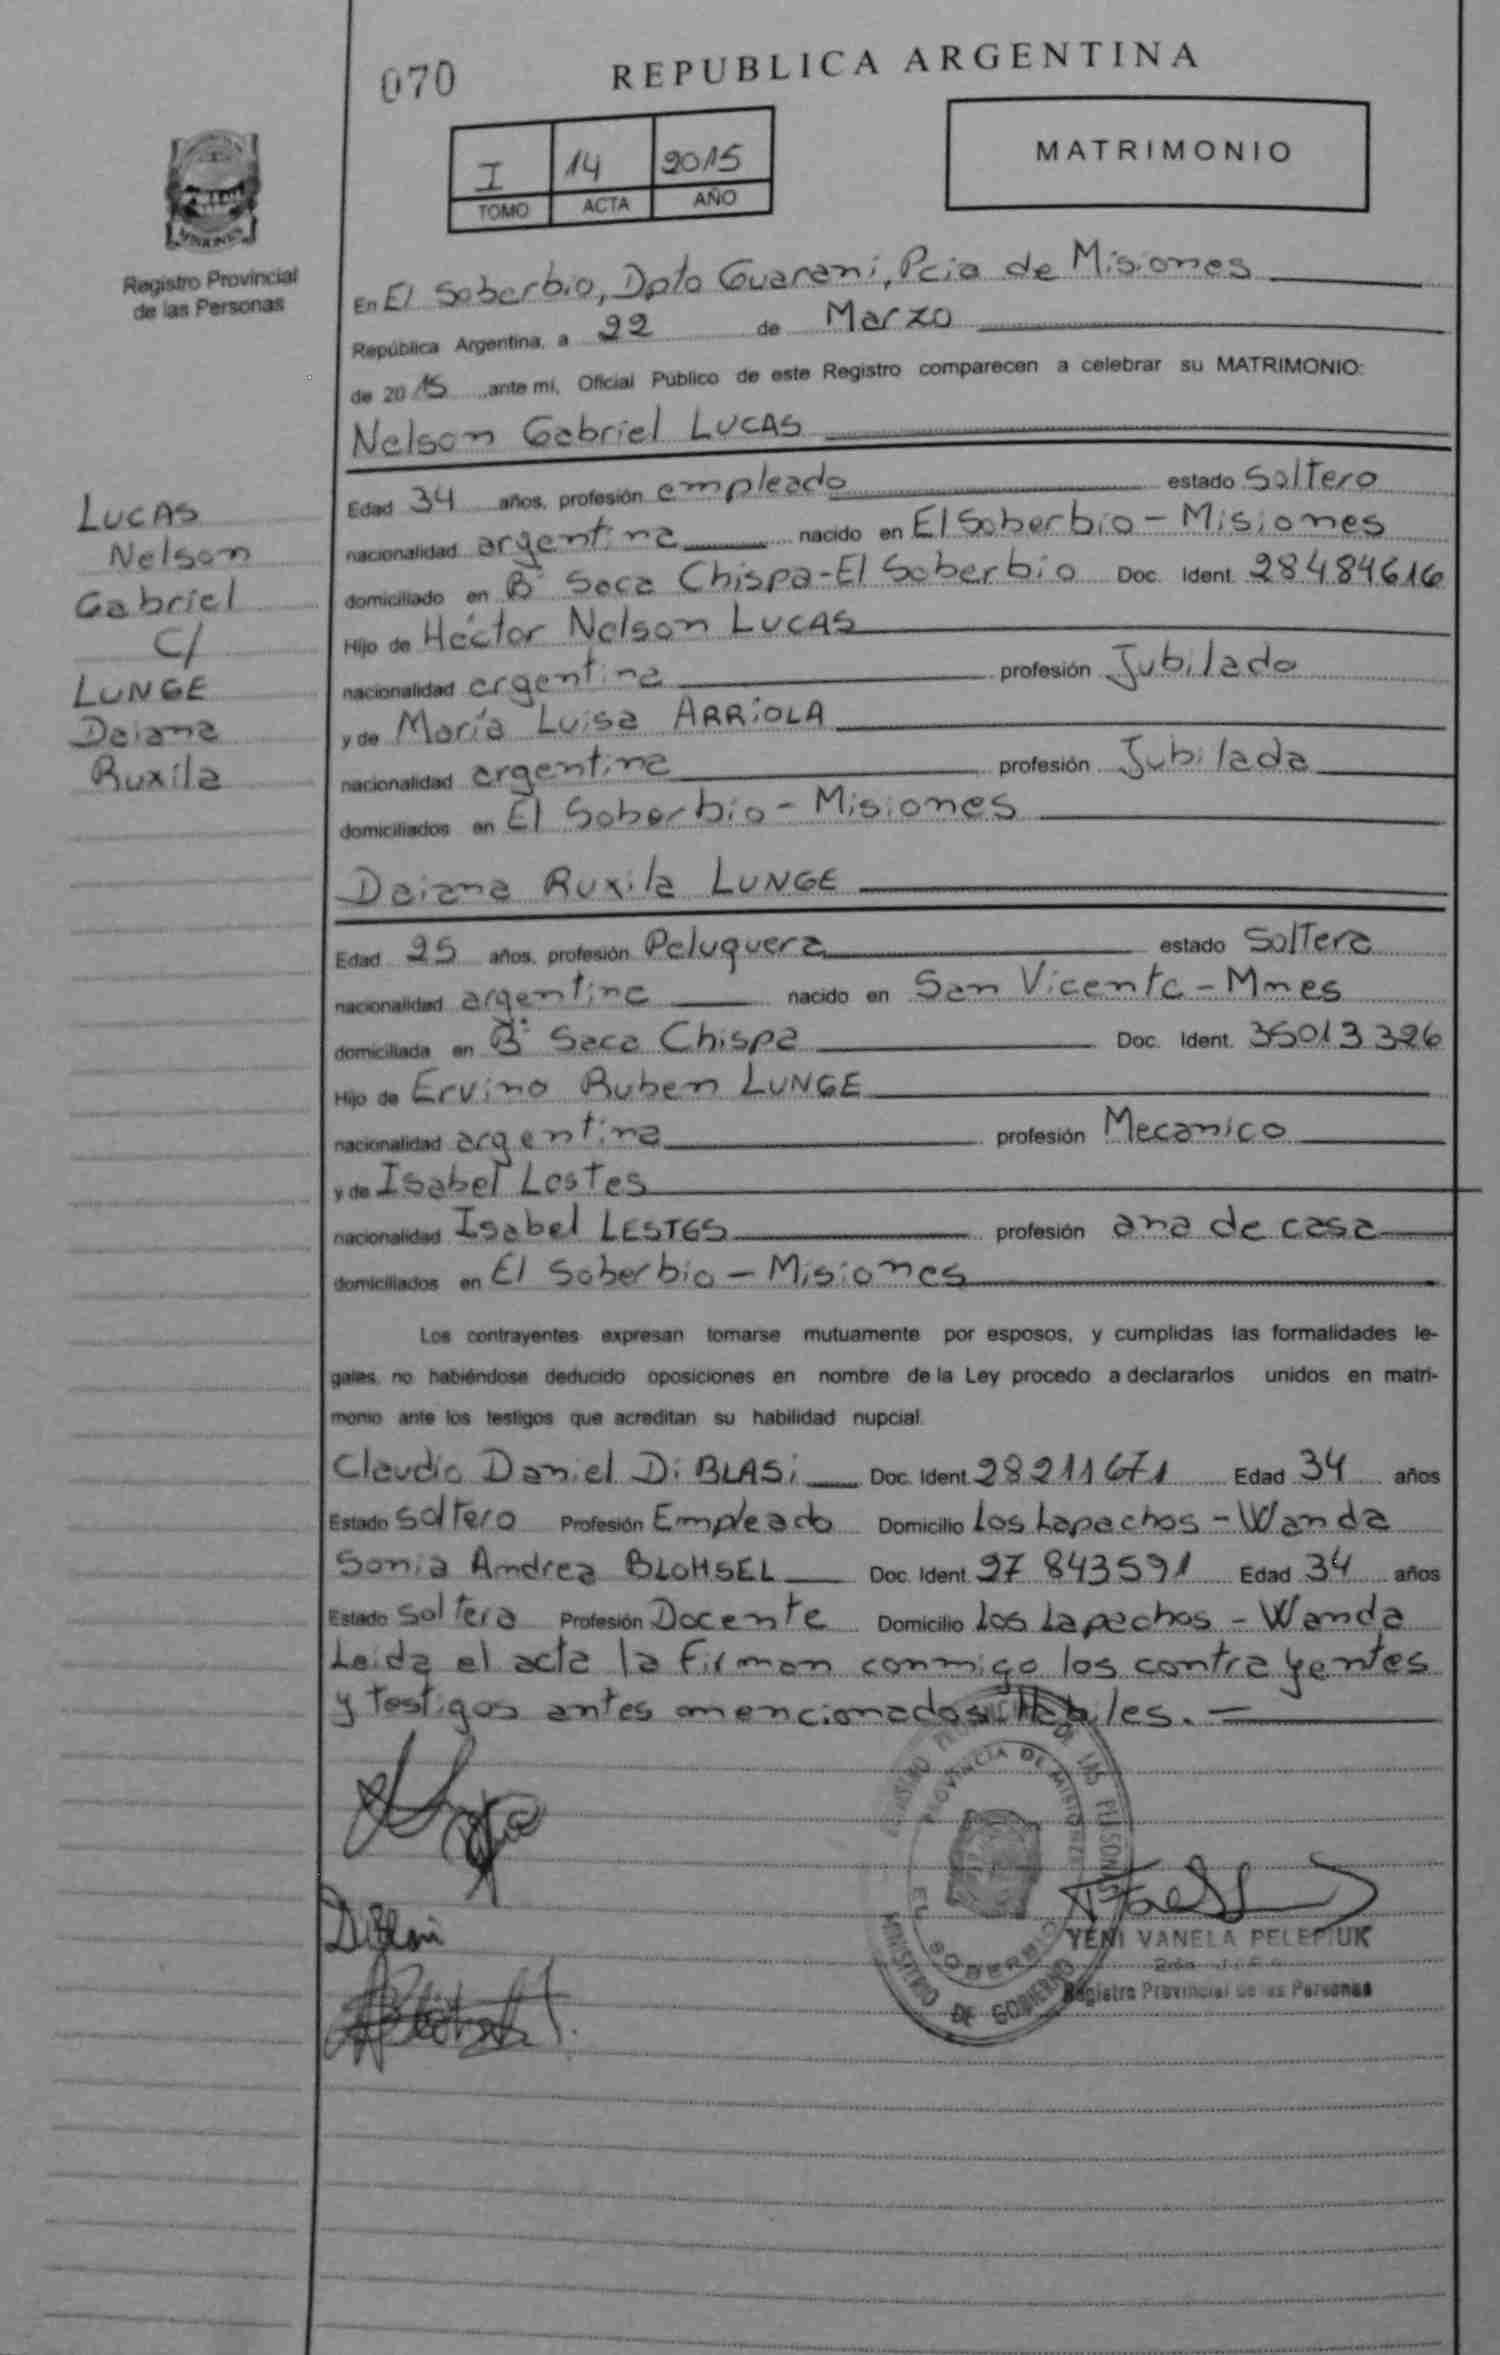 070
REPUBLICA ARGENTINA
MATRIMONIO
I 14 2015
TOMO ACTA AÑO
MISIONES
Registro Provincial
de las Personas
En El Soberbio, Dpto Guaraní, Pcia de Misiones
República Argentina, a 22 de Marzo
de 2015 ante mí, Oficial Público de este Registro comparecen a celebrar su MATRIMONIO:
Nelson Gabriel LUCAS
Edad 34 años, profesión empleado estado Soltero
nacionalidad argentina nacido en El Soberbio - Misiones
domiciliado en B° Saca Chispa - El Soberbio Doc. Ident. 28484616
Hijo de Héctor Nelson LUCAS
nacionalidad argentina profesión Jubilado
y de María Luisa ARRiOLA
nacionalidad argentina profesión Jubilada
domiciliados en El Soberbio - Misiones
Daiana Ruxila LUNGE
Edad 25 años, profesión Peluquera estado Soltera
nacionalidad argentina nacido en San Vicente - Mnes
domiciliada en B° Saca Chispa Doc. Ident. 35013326
Hijo de Ervino Ruben LUNGE
nacionalidad argentina profesión Mecanico
y de Isabel Lestes
nacionalidad Isabel LESTES profesión ama de casa
domiciliados en El Soberbio - Misiones
Los contrayentes expresan tomarse mutuamente por esposos, y cumplidas las formalidades le-
gales, no habiéndose deducido oposiciones en nombre de la Ley procedo a declararlos unidos en matri-
monio ante los testigos que acreditan su habilidad nupcial.
Claudio Daniel Di BLASi Doc. Ident. 28211671 Edad 34 años
Estado Soltero Profesión Empleado Domicilio Los Lapachos - Wanda
Sonia Andrea BLOHSEL Doc. Ident. 27 843591 Edad 34 años
Estado Soltera Profesión Docente Domicilio Los Lapachos - Wanda
Leída el acta la firman conmigo los contrayentes
y testigos antes mencionados Hábiles. -
LUCAS
Nelson
Gabriel
C/
LUNGE
Daiana
Ruxila
PROVINCIA DE MISIONES
EL SOBERBIO
MINISTERIO DE GOBIERNO
DE LAS PERSONAS
YENI VANELA PELEPIUK
Registro Provincial de las Personas